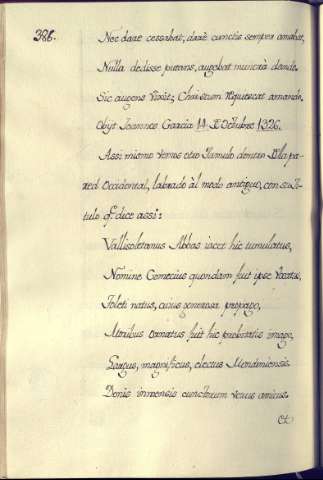 386.
Nec dare cessabat, dare cunctis semper amabat,
Nulla dedisse putans, augebat munera dando.
Sic augens Christum requiescat amando.
Obijt Joannes Garcia 14 Octubre 1326.
Assi mismo vemos otro Tumulo dentro pa-
red Occidental, labrado àl modo antiguo, con su Ti-
tulo q̃ dice assi:
Vallisoletanus Abbas iacet hic tumulatus,
Nomine Gomecius quondam fuit ipse Vocatus,
Toleti natus, cuius generosa propago,
Moribus ornatus fuit hic probitatis imago,
Largus, magnificus, electus Mendiniensis
Donis inmensis cunctorum verus amicus.
et